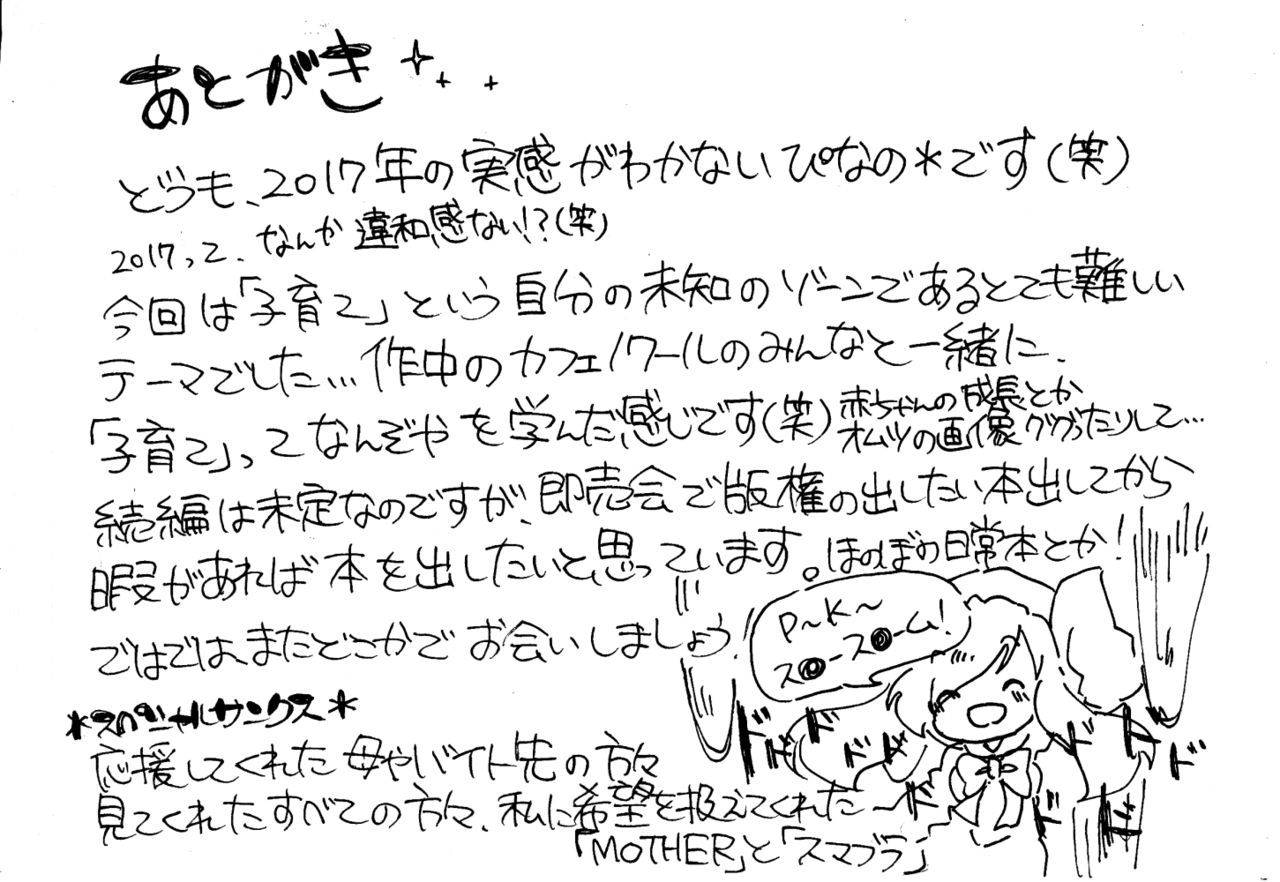 あとがき
どうも、2017年の実感がわかないぴなの*です(笑)
2017って、なんか違和感ない!?(笑)
今回は「子育て」という自分の未知のゾーンであるとても難しい
テーマでした…作中のカフェノワールのみんなと一緒に、
「子育て」ってなんぞやを学んだ感じです(笑)
赤ちゃんの成長とか
オムツの画像ググったりして…
続編は未定なのですが、即売会で版権の出したい本出してから
暇があれば本を出したいと思っています。ほのぼの日常本とか!
ではでは、またどこかでお会いしましょう!
P~K~
スターストーム!
ドドドドドドドドドドド
*スペシャルサンクス*
応援してくれた母やバイト先の方々
見てくれたすべての方々、私に希望を与えてくれた
「MOTHER」と「スマブラ」